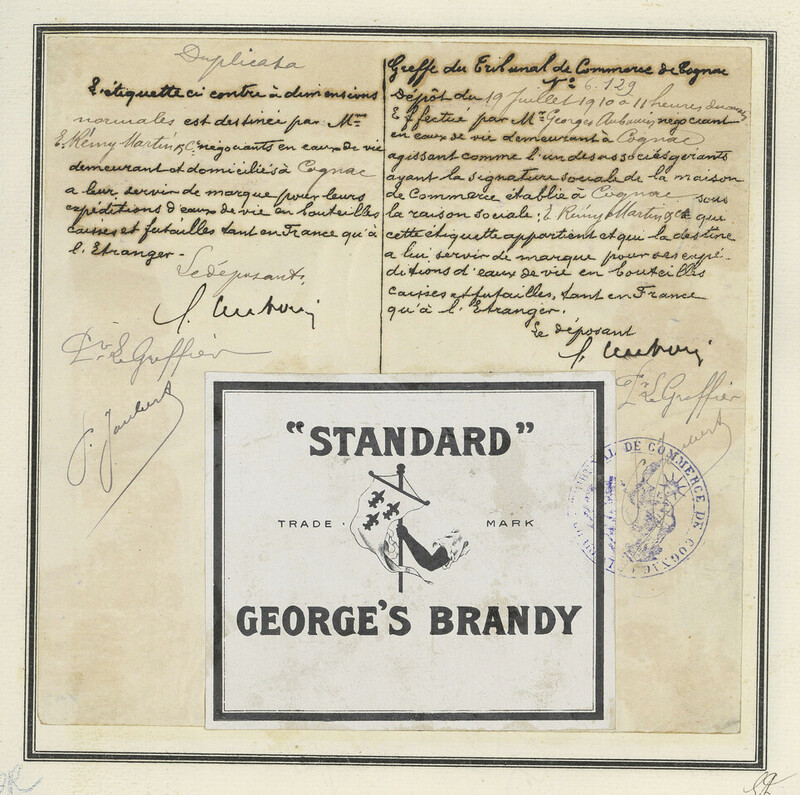 Duplicata
L'étiquette ci contre à dimensions
normales est destinée par Mrs
E. Rémy Martin & Co négociants en eaux de vie
demeurant et domiciliés à Cognac
a leur servir de marque pour leurs
expéditions d'eaux de vie en bouteilles
caisses et futailles tant en France qu'à
l'Etranger -
Le déposant,
Le Greffier
J. Joubert
Greffe du Tribunal de Commerce de Cognac
No 6.129
Dépôt du 19 Juillet 1910 à 11 heures du
Effectué par Mr Georges négociant
en eaux de vie demeurant à Cognac
agissant comme l'un des associés gérants
ayant la signature sociale de la maison
de Commerce établie à Cognac sous
la raison sociale: E. Rémy Martin & Co que
cette étiquette appartient et qui la destine
a lui servir de marque pour ses expé-
ditions d'eaux de vie en bouteilles
caisses et futailles, tant en France
qu'à l'Etranger.
Le déposant
Le Greffier
"STANDARD"
TRADE · MARK
GEORGE'S BRANDY
TRIBUNAL DE COMMERCE DE COGNAC